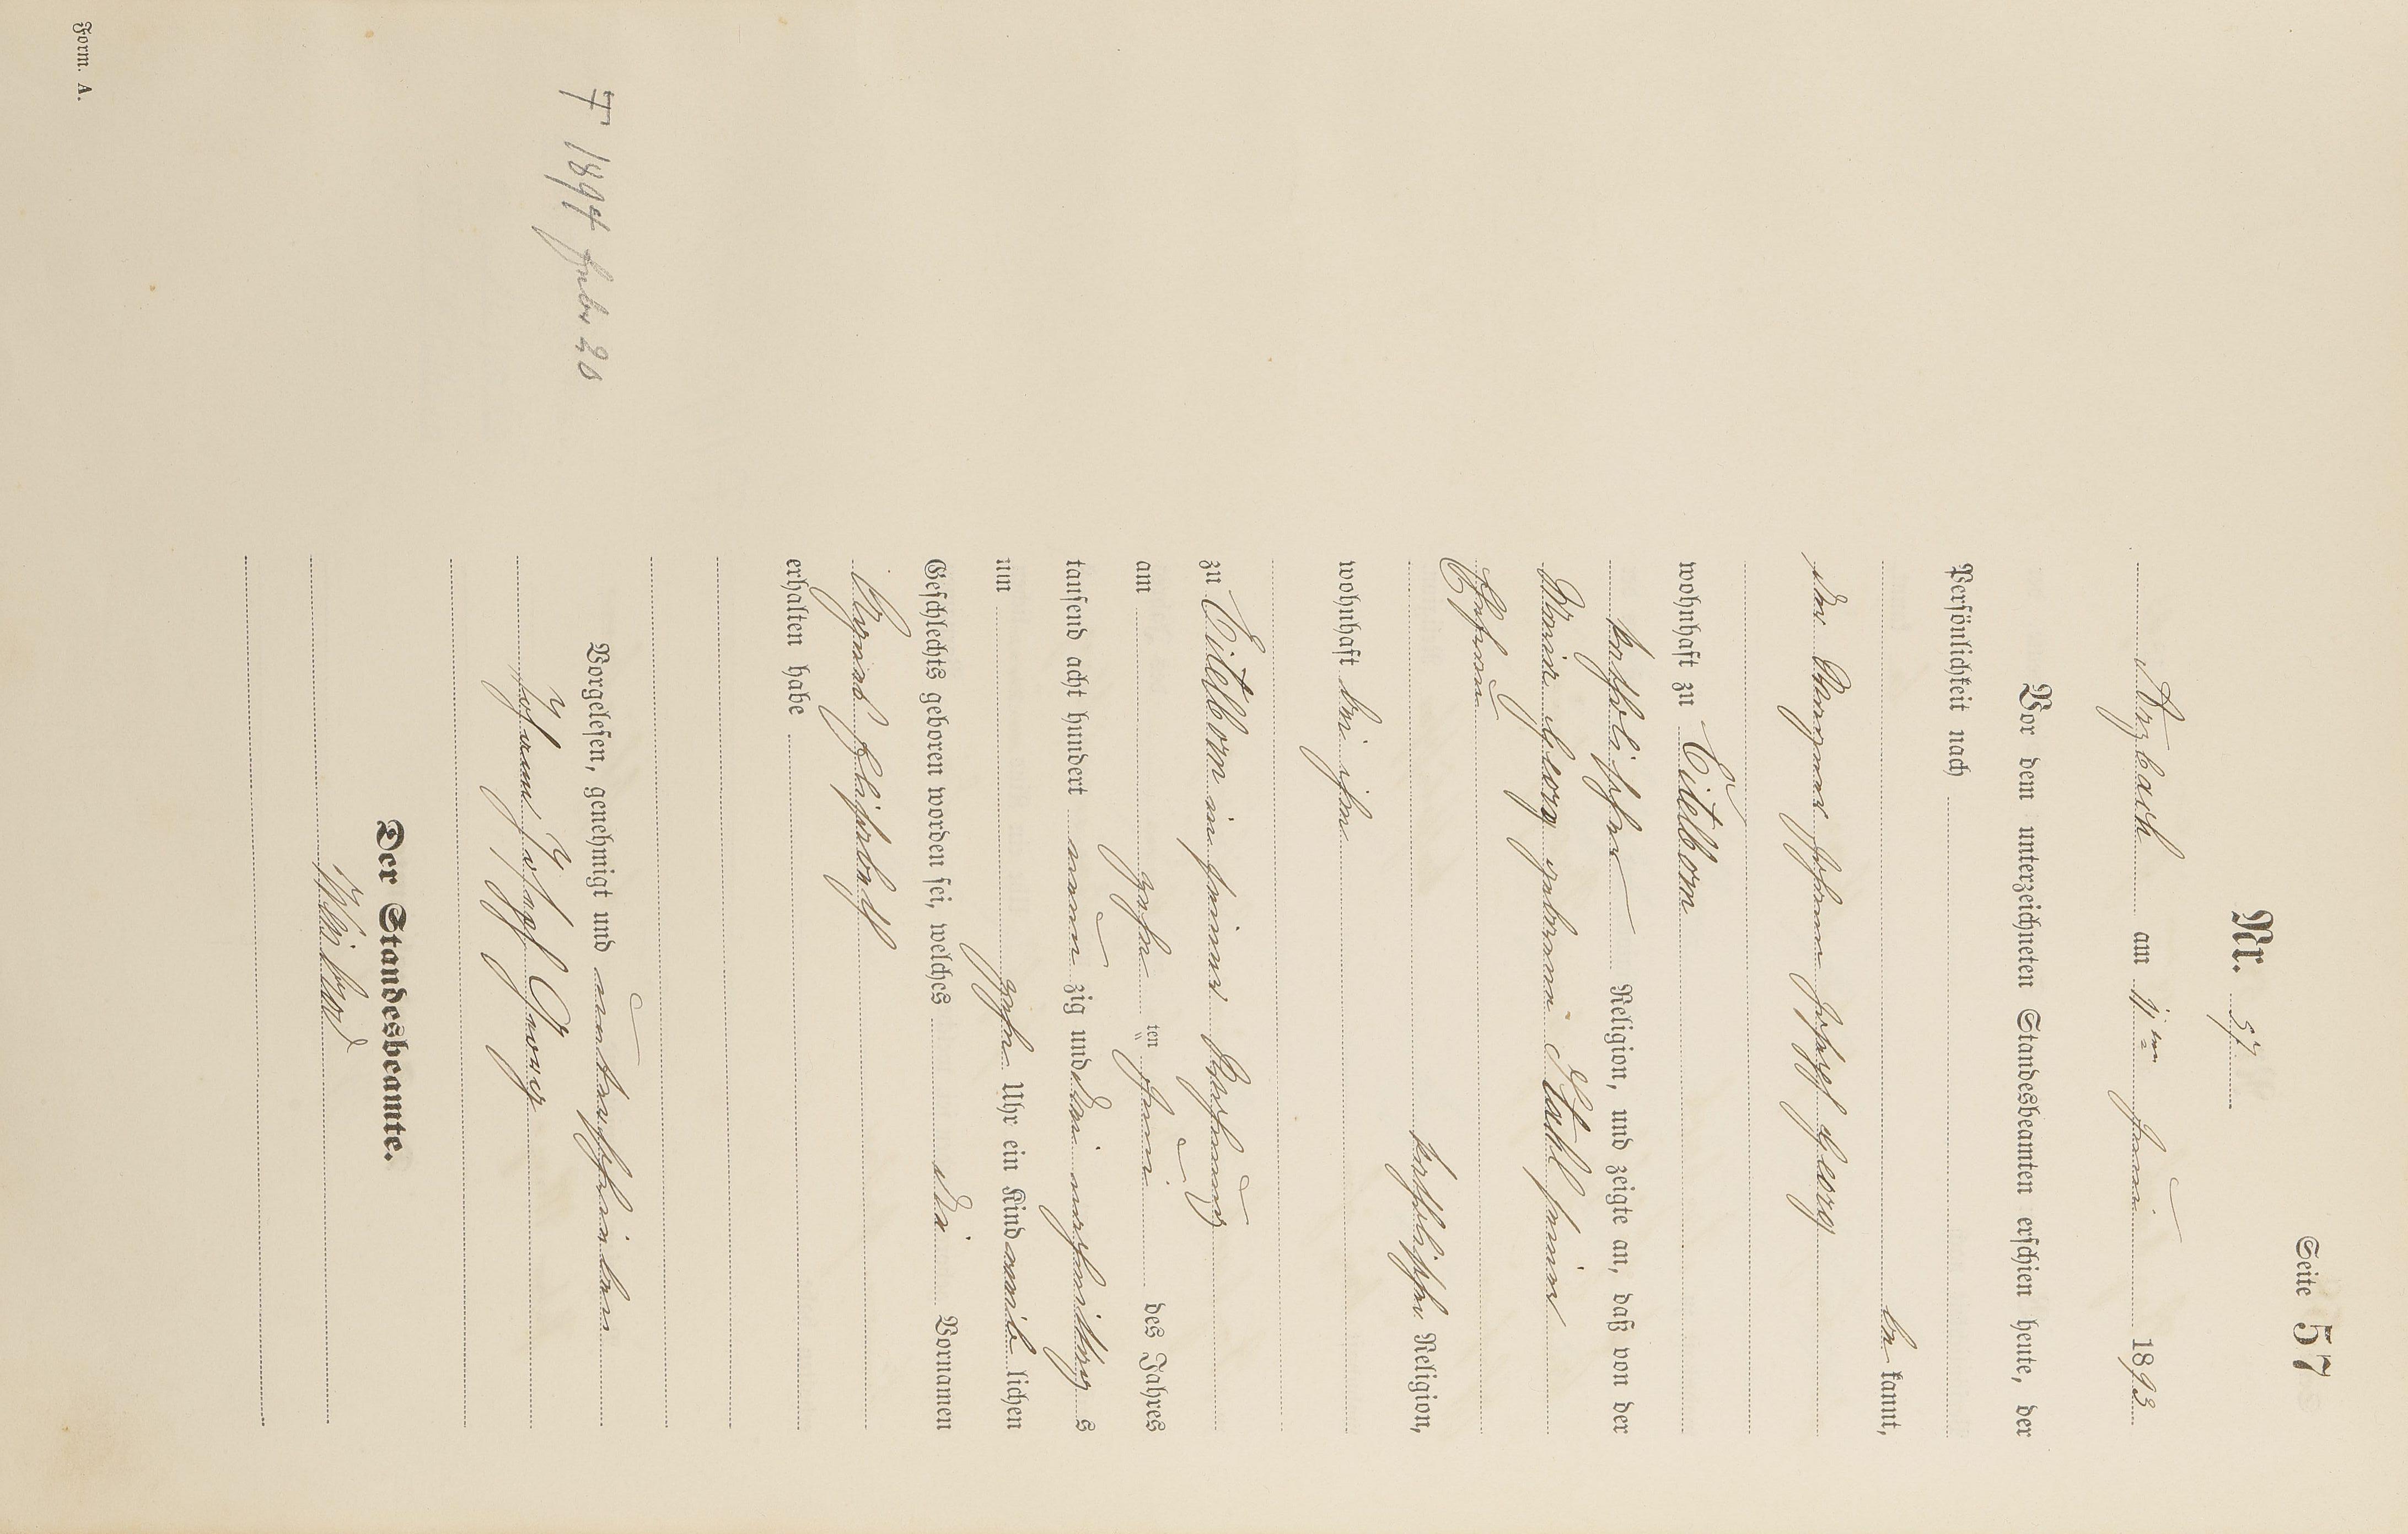 Seite 57
Nr. 57
Arzbach am 11ten Juni 1893
Vor dem unterzeichneten Standesbeamten erschien heute, der
Persönlichkeit nach
be kannt,
der Maurer Johann Joseph Georg
wohnhaft zu Eitelborn
katholischer Religion, und zeigte an, daß von der
Maria Georg geborene Stahl seiner
Ehefrau
katholischer Religion,
wohnhaft bei ihm
zu Eitelborn in seiner Wohnung
am zehn ten Juni des Jahres
tausend acht hundert neun zig und drei vormittag s
um zehn Uhr ein Kind weib lichen
Geschlechts geboren worden sei, welches die Vornamen
Agnes Elisabeth
erhalten habe
Vorgelesen, genehmigt und unterschrieben
Johann Joseph Georg
Der Standesbeamte.
† 1894 Febr 28
Form. A.